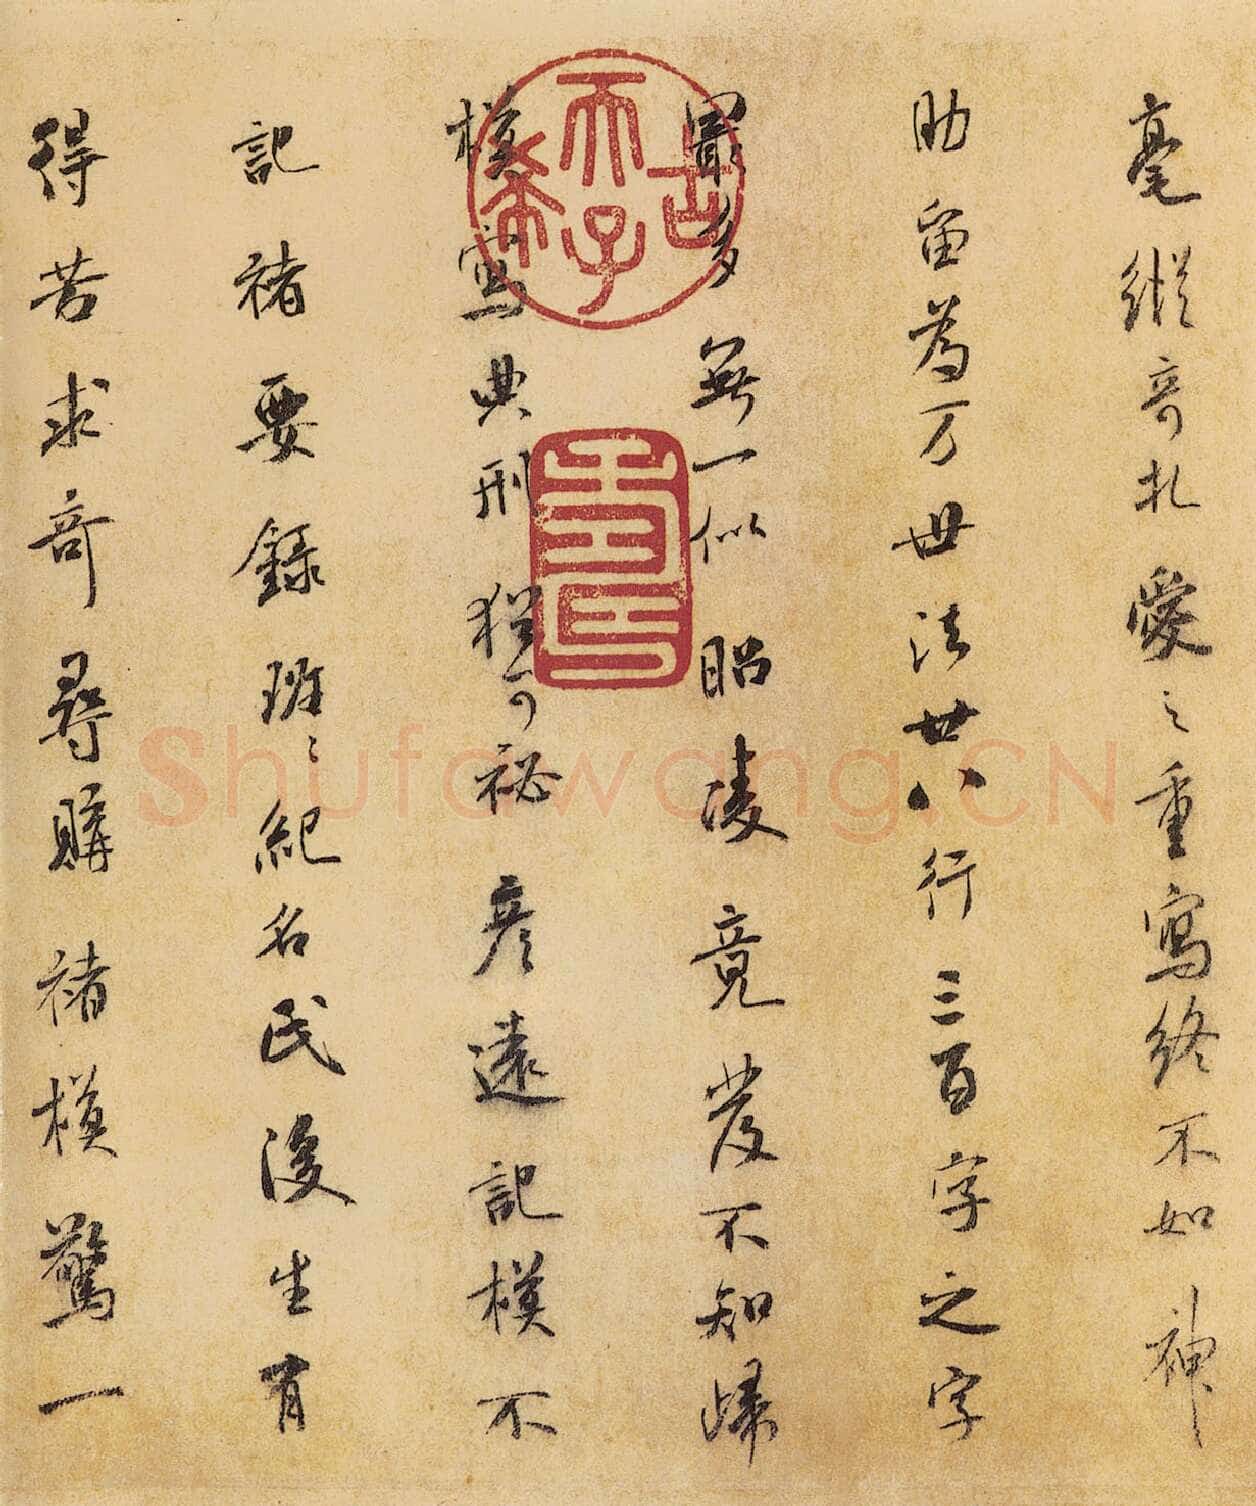 毫縱奇札愛之重寫終不如神
助留為万世法廿八行三百字之字
最多無一似昭陵竟發不知歸
模寫典刑猶可祕彥遠記模不
記褚要錄班〻紀名氏後生有
得苦求奇尋購褚模驚一
古希天子
壽
Shufawang.CN